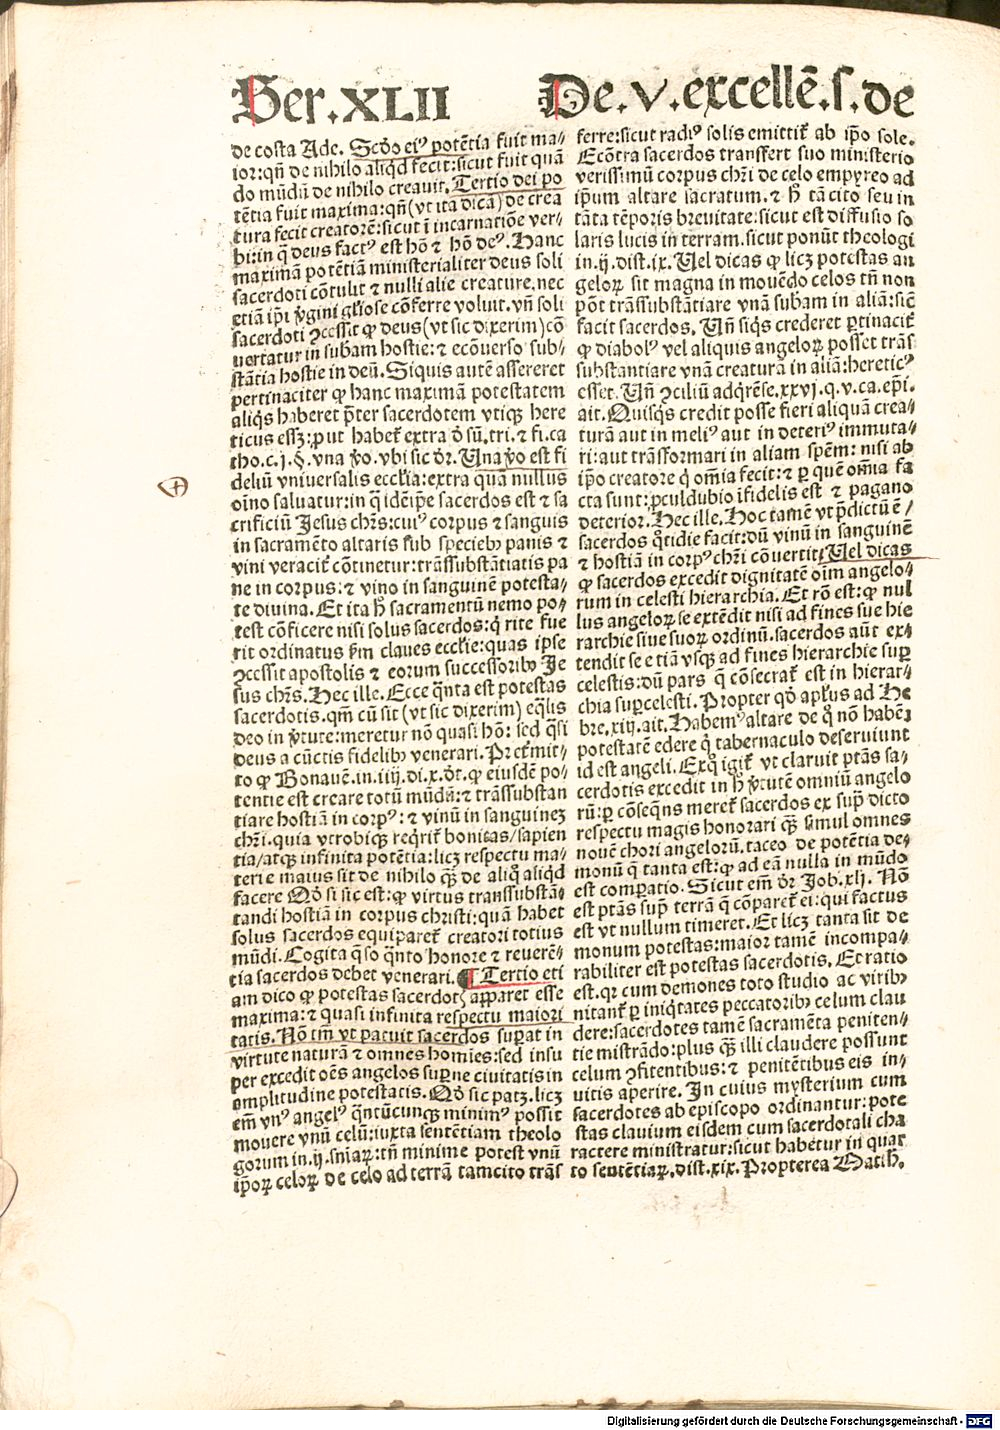 Ser.XLII De.v.excellē.s.de
de costa Ade. Scďo ei⁹ potētia fuit ma⸗
ior:qñ de nihilo aliqd fecit:sicut fuit quā
do mūdū de nihilo creauit. Tertio dei po
tētia fuit maxima:qñ(vt ita dicā)de crea
tura fecit creatorē:sicut ī incarnatiōe ver⸗
bi:in q̄ deus fact⁹ est hō ⁊ hō de⁹. Hanc
maximā potētiā ministerialiter deus soli
sacerdoti cōtulit ⁊ nulli alie creature.nec
etiā ip̄i v̄gini gl̄iose cōferre voluit.vñ soli
sacerdoti ꝯcessit ꝙ deus(vt sic dixerim)cō
uertatur in subam hostie:⁊ ecōuerso sub⸗
stātia hostie in deū. Siquis autē assereret
pertinaciter ꝙ hanc maximā potestatem
aliq̄s haberet p̄ter sacerdotem vtiqꝫ here
ticus essꝫ:put habet̄ extra ď sū.tri.⁊ fi.ca
tho.c.j.§.vna v̄o.vbi sic ďr. Una v̄o est fi
deliū vniuersalis eccl̄ia:extra quā nullus
oīno saluatur:in q̄ idēip̄e sacerdos est ⁊ sa
crificiū Jesus chr̄s:cui⁹ corpus ⁊ sanguis
in sacramēto altaris sub specieb⁹ panis ⁊
vini veracit̄ cōtinetur:trāssubstātiatis pa
ne in corpus:⁊ vino in sanguinē potesta⸗
te diuina. Et ita h̄ sacramentū nemo po⸗
test cōficere nisi solus sacerdos:q̄ rite fue
rit ordinatus ẜm claues eccl̄ie:quas ipse
ꝯcessit apostolis ⁊ eorum successorib⁹ Je
sus chr̄s. Hec ille. Ecce q̄nta est potestas
sacerdotis.qm̄ cū sit (vt sic dixerim) eq̄lis
deo in v̄tute:meretur nō quasi hō: sed q̄si
deus a cūctis fidelib⁹ venerari. Pret̄mit⸗
to ꝙ Bonauē.in.iiij.di.x.ďt.ꝙ eiusdē po⸗
tentie est creare totū mūdū:⁊ trāssubstan
tiare hostiā in corp⁹:⁊ vinū in sanguinez
chr̄i.quia vtrobiqꝫ reqrit̄ bonitas/sapien
tia/atqꝫ infinita potētia:licꝫ respectu ma⸗
terie maius sit de nihilo qꝫ̄ de aliq̄ aliqd
facere Qď si sic est:ꝙ virtus transsubstā⸗
tandi hostiā in corpus christi:quā habet
solus sacerdos equiparet̄ creatori totius
mūdi. Cogita q̄so q̄nto honore ⁊ reuerē⸗
tia sacerdos debet venerari. ¶ Tertio eti
am dico ꝙ potestas sacerdotꝭ apparet esse
maxima:⁊ quasi infinita respectu maiori
tatis. Nō tm̄ vt patuit sacerdos suꝑat in
virtute naturā ⁊ omnes homīes:sed insu
per excedit oēs angelos suꝑne ciuitatis in
amplitudine potestatis. Qď sic patꝫ.licꝫ
em̄ vn⁹ angel⁹ q̄ntūcunqꝫ minim⁹ possit
mouere vnū celū:iuxta sentētiam theolo
gorum in.ij.sn̄iaꝝ:tn̄ minime potest vnū
ip̄oꝝ celoꝝ de celo ad terrā tamcito trās
ferre:sicut radi⁹ solis emittit̄ ab ip̄o sole.
Ecōtra sacerdos transfert suo ministerio
verissimū corpus chr̄i de celo empyreo ad
ip̄um altare sacratum.⁊ h̄ tā cito seu in
tāta tēporis breuitate:sicut est diffusio so
laris lucis in terram.sicut ponūt theologi
in.ij.dist.ix. Uel dicas ꝙ licꝫ potestas an
geloꝝ sit magna in mouēdo celos tn̄ non
pōt trāssubstātiare vnā subam in aliā:sic̄
facit sacerdos. Uñ siq̄s crederet ꝑtinacit̄
ꝙ diabol⁹ vel aliquis angeloꝝ posset trās
substantiare vnā creaturā in aliā:heretic⁹
esset. Uñ ꝯciliū adq̄rēse.xxvj.q.v.ca.ep̄i.
ait. Quisq̄s credit posse fieri aliquā crea⸗
turā aut in meli⁹ aut in deteri⁹ immuta⸗
ri:aut trāsformari in aliam spēm: nisi ab
ip̄o creatore q̄ om̄ia fecit:⁊ ꝑ quē om̄ia fa
cta sunt:ꝓculdubio īfidelis est ⁊ pagano
deterior. Hec ille. Hoc tamē vt p̄dictū ē/
sacerdos q̄tidie facit:dū vinū in sanguinē
⁊ hostiā in corp⁹ chr̄i cōuertit. Uel dicas
ꝙ sacerdos excedit dignitatē oīm angelo⸗
rum in celesti hierarchia. Et rō est:ꝙ nul
lus angeloꝝ se extēdit nisi ad fines sue hie
rarchie siue suoꝝ ordinū.sacerdos aūt ex⸗
tendit se etiā vsqꝫ ad fines hierarchie suꝑ
celestis:dū pars q̄ cōsecrat̄ est in hierar⸗
chia suꝑcelesti. Propter qď apl̄us ad He
bre.xiij.ait. Habem⁹ altare de q̄ nō habēt
potestatē edere q̄ tabernaculo deseruiunt
id est angeli. Exq̄ igit̄ vt claruit ptās sa⸗
cerdotis excedit in h̄ v̄tutē omniū angelo
rū:ꝑ cōseq̄ns meret̄ sacerdos ex sup̄ dicto
respectu magis honorari qꝫ̄ simul omnes
nouē chori angelorū.taceo de potētia de⸗
monū q̄ tanta est:ꝙ ad eā nulla in mūdo
est comꝑatio. Sicut em̄ ďr Job.xlj. Nō
est ptās sup̄ terrā q̄ cōparet̄ ei:qui factus
est vt nullum timeret. Et licꝫ tanta sit de
monum potestas:maior tamē incompa⸗
rabiliter est potestas sacerdotis. Et ratio
est.qꝛ cum demones toto studio ac virib⁹
nitant̄ ꝑ iniq̄tates peccatorib⁹ celum clau
dere:sacerdotes tamē sacramēta peniten⸗
tie mistrādo:plus qꝫ̄ illi claudere possunt
celum ꝯfitentibus:⁊ penitētibus eis in⸗
uitis aperire. In cuius mysterium cum
sacerdotes ab episcopo ordinantur:pote
stas clauium eisdem cum sacerdotali cha
ractere ministratur:sicut habetur in quar
to sententiaꝝ.dist.xix. Propterea Matth.
Digitalisierung gefördert durch die Deutsche Forschungsgemeinschaft - DFG